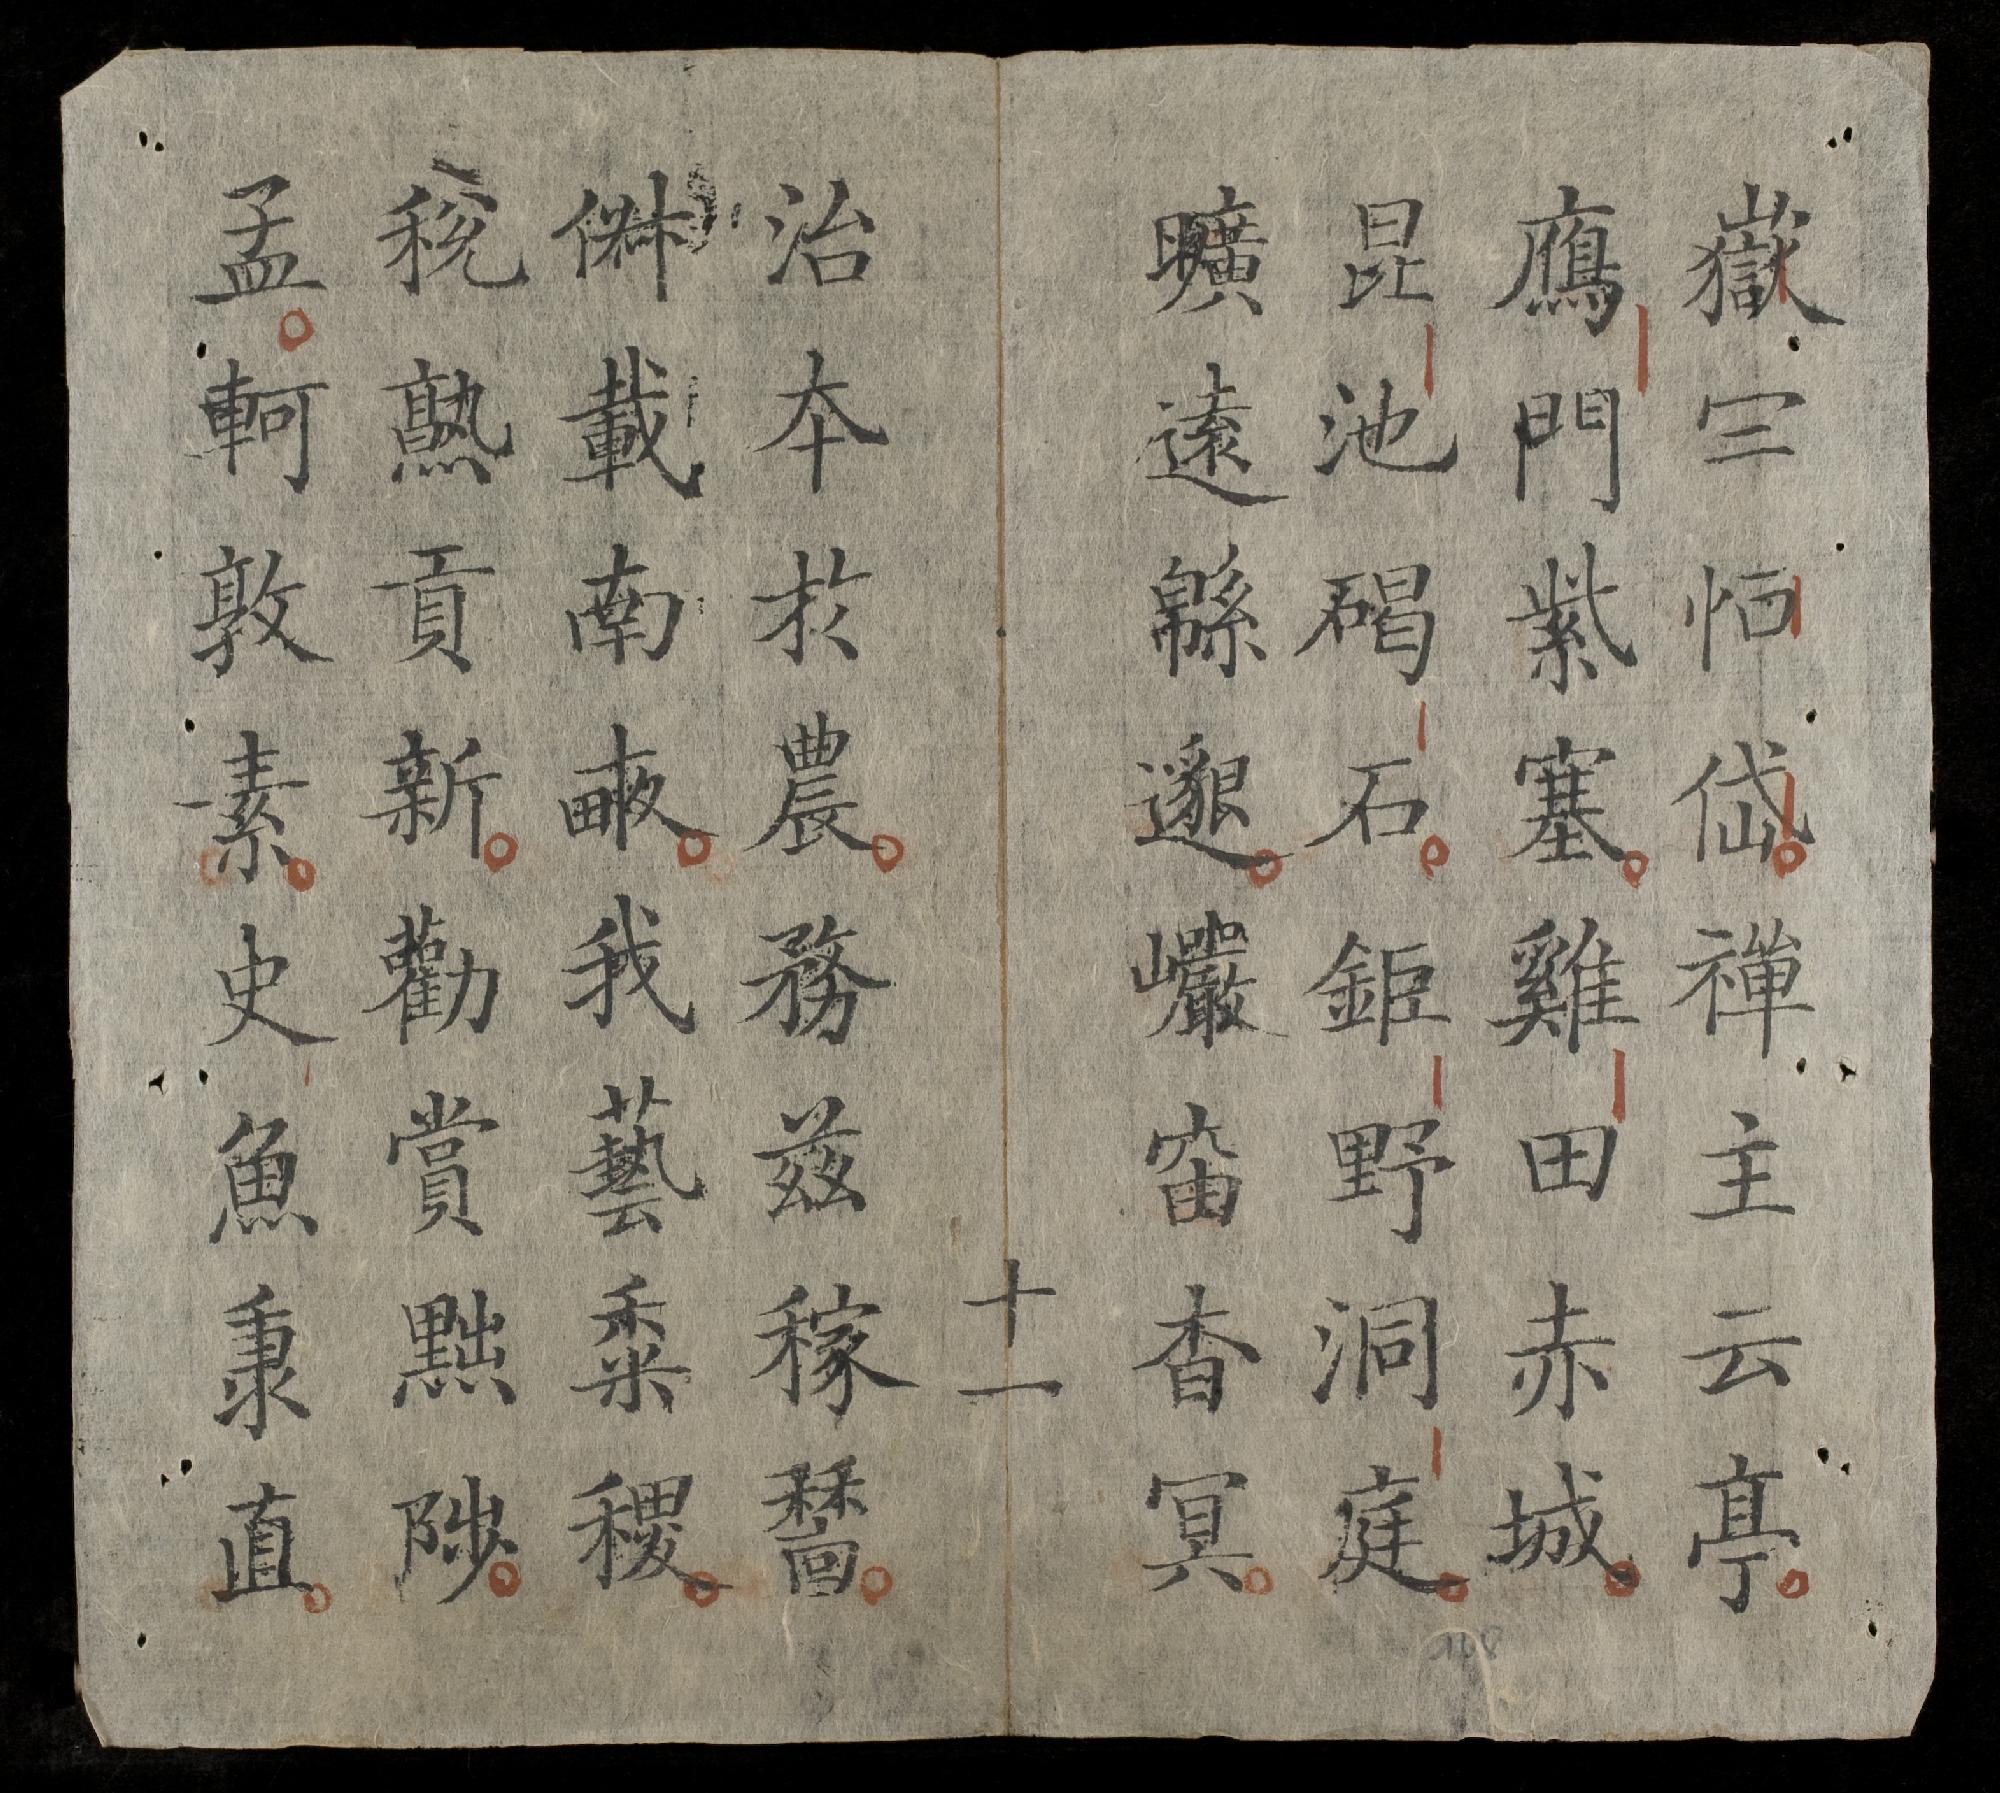 嶽宗恒岱禪主云亭
鴈門紫塞雞田赤城
昆池碣石鉅野洞庭
曠遠緜邈巖峀杳冥
十一
治本於農務兹稼穡
俶載南畝我藝黍稷
稅熟貢新勸賞黜陟
孟軻敦素史魚秉直